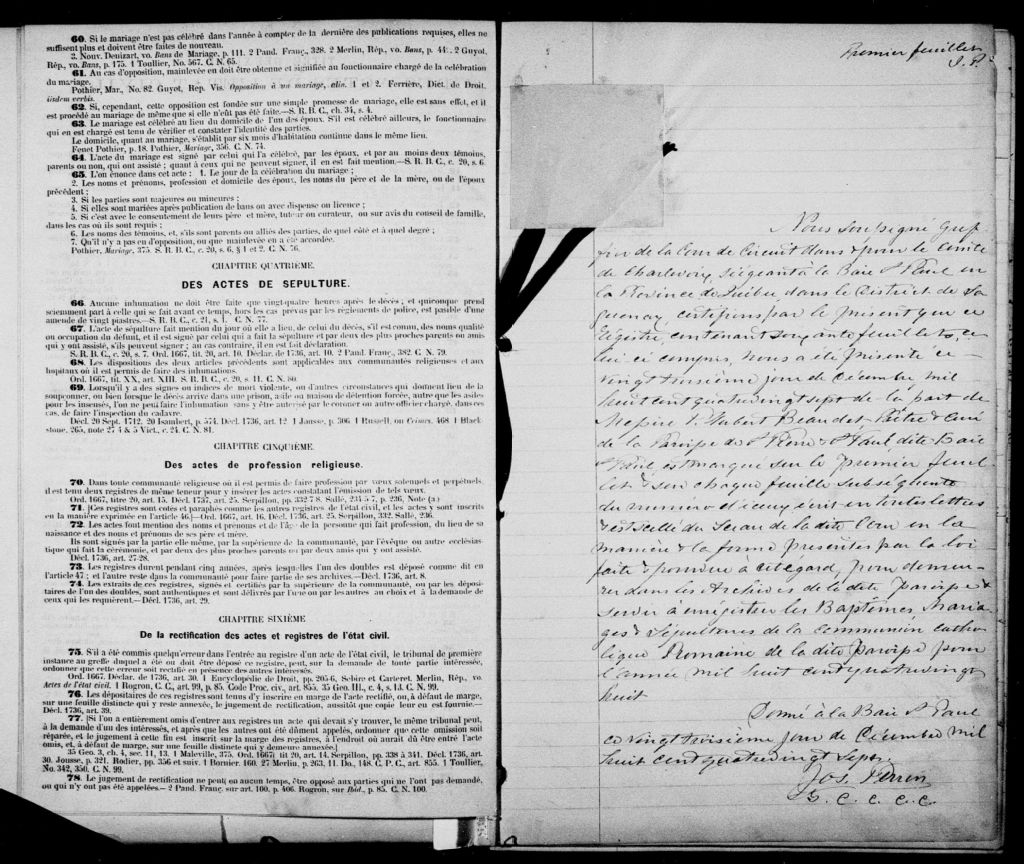 60. Si le mariage n'est pas célébré dans l'année à compter de la dernière des publications requises, elles ne
suffisent plus et doivent être faites de nouveau.
3. Nouv. Denizart, vo. Bans de Mariage, p. 111. 2 Pand. Franç., 328. 2 Merlin, Rép., vo. Bans, p. 2 Guyot,
Rép., vo. Bans, p. 175. 1 Toullier, No. 567. C. N. 65.
61. Au cas d'opposition, mainlevée en doit être obtenue et signifiée au fonctionnaire chargé de la célébration
du mariage.
Pothier, Mar., No. 82. Guyot, Rep. Vis. Opposition à un mariage, 1 et 2. Ferrière, Dict. de Droit,
iisdem verbis.
62. Si, cependant, cette opposition est fondée sur une simple promesse de mariage, elle est sans effet, et il
est procédé au mariage de même que si elle n'eût pas été faite.—S. R. B. C., ch. 34, s. 4.
63. Le mariage est célébré au lieu du domicile de l'un des époux. S'il est célébré ailleurs, le fonctionnaire
qui en est chargé est tenu de vérifier et constater l'identité des parties.
Le domicile, quant au mariage, s'établit par six mois d'habitation continue dans le même lieu.
Fenet Pothier, p. 18. Pothier, Mariage, 356. C. N. 74.
64. L'acte du mariage est signé par celui qui l'a célébré, par les époux, et par au moins deux témoins,
parents ou non, qui ont assisté ; quant à ceux qui ne peuvent signer, il en est fait mention.—S. R. B. C., c. 20, s. 6.
65. L'on énonce dans cet acte : 1. Le jour de la célébration du mariage ;
2. Les noms et prénoms, profession et domicile des époux, les noms du père et de la mère, ou de l'époux
précédent ;
3. Si les parties sont majeures ou mineures ;
4. Si elles sont mariées après publication de bans ou avec dispense ou licence ;
5. Si c'est avec le consentement de leurs père et mère, tuteur ou curateur, ou sur avis du conseil de famille,
dans les cas où ils sont requis ;
6. Les noms des témoins, et, s'ils sont parents ou alliés des parties, de quel côté et à quel degré ;
7. Qu'il n'y a pas eu d'opposition, ou que mainlevée en a été accordée.
Pothier, Mariage, 375. S. R. B. C., c. 20, s. 6, § 1 et 2. C. N. 76.
CHAPITRE QUATRIÈME.
DES ACTES DE SEPULTURE.
66. Aucune inhumation ne doit être faite que vingt-quatre heures après le décès ; et quiconque prend
sciemment part à celle qui se fait avant ce temps, hors les cas prévus par les règlements de police, est passible d'une
amende de vingt piastres.—S. R. B. C., c. 21, s. 1. C. N. 77.
67. L'acte de sépulture fait mention du jour où elle a lieu, de celui du décès, s'il est connu, des noms qualité
ou occupation du défunt, et il est signé par celui qui a fait la sépulture et par deux des plus proches parents ou amis
qui y ont assisté, s'ils peuvent signer ; au cas contraire, il en est fait déclaration.
S. R. B. C., c. 20, s. 7. Ord. 1667, tit. 20, art. 10. Déclar. de 1736, art. 10. 2 Pand. Franç., 382. C. N. 79.
68. Les dispositions des deux articles précédents sont applicables aux communautés religieuses et aux
hopitaux où il est permis de faire des inhumations.
Ord. 1667, tit. XX, art. XIII. S. R. B. C., c. 20, s. 11. C. N. 80.
69. Lorsqu'il y a des signes ou indices de mort violente, ou d'autres circonstances qui donnent lieu de la
soupçonner, ou bien lorsque le décès arrive dans une prison, asile ou maison de détention forcée, autre que les asiles
pour les insensés, l'on ne peut faire l'inhumation sans y être autorisé par le coroner ou autre officier chargé, dans ces
cas, de faire l'inspection du cadavre.
Décl. 20 Sept. 1712, 20 Isambert, p. 574. Décl. 1736, art. 12 1 Jousse, p. 306 1 Russell, ou Crimes, 468 1 Black
stone, 265, note 27 4 & 5 Vict., c. 24. C. N. 81.
CHAPITRE CINQUIÈME.
Des actes de profession religieuse.
70. Dans toute communauté religieuse où il est permis de faire profession par vœux solennels et perpétuels,
il est tenu deux registres de même teneur pour y insérer les actes constatant l'émission de tels vœux.
Ord. 1667, titre 20, art. 15. Décl. 1737, art. 25. Serpillon, pp. 332 7 8 Sallé, 234 5 7, p. 226, Note (a.)
71. [Ces registres sont cotés et paraphés comme les autres registres de l'état civil, et les actes y sont inscrits
en la manière exprimée en l'article 46.]—Ord. 1667, art. 16. Décl. 1736, art. 25. Serpillon, 332. Sallé, 236.
72. Les actes font mention des noms et prénoms et de l'âge de la personne qui fait profession, du lieu de sa
naissance et des noms et prénoms de ses père et mère.
Ils sont signés par la partie elle même, par la supérieure de la communauté, par l'évêque ou autre ecclésias-
tique qui fait la cérémonie, et par deux des plus proches parents ou par deux amis qui y ont assisté.
Décl. 1736, art. 27-28.
73. Les registres durent pendant cinq années, après lesquelles l'un des doubles est déposé comme dit en
l'article 47 ; et l'autre reste dans la communauté pour faire partie de ses archives.—Décl. 1736, art. 8.
74. Les extraits de ces registres, signés et certifiés par la supérieure de la communauté, ou par les déposi-
taires de l'un des doubles, sont authentiques et sont délivrés par l'une ou par les autres au choix et à la demande de
ceux qui les requièrent.—Décl. 1736, art. 29.
CHAPITRE SIXIÈME
De la rectification des actes et registres de l'état civil.
75. S'il a été commis quelqu'erreur dans l'entrée au registre d'un acte de l'état civil, le tribunal de première
instance au greffe duquel a été ou doit être déposé ce registre, peut, sur la demande de toute partie intéressée,
ordonner que cette erreur soit rectifié en présence des autres intéressés.
Ord. 1667. Déclar. de 1736, art. 30. 1 Encyclopédie de Droit, pp. 205-6, Sebire et Carteret. Merlin, Rép., vo.
Actes de l'état civil. 1 Rogron, C. C., art. 99, p. 85. Code Proc. civ., art. 855. 35 Geo. III., c. 4, s. 13. C. N. 99.
76. Les dépositaires de ces registres sont tenus d'y inscrire en marge de l'acte rectifié, ou, à défaut de marge,
sur une feuille distincte qui y reste annexée, le jugement de rectification, aussitôt que copie leur en est fournie.—
Décl. 1736, art. 39.
77. [Si l'on a entièrement omis d'entrer aux registres un acte qui devait s'y trouver, le même tribunal peut,
à la demande d'un des intéressés, et après que les autres ont été dûment appelés, ordonner que cette omission soit
réparée, et le jugement à cette fin est inscrit sur la marge des registres, à l'endroit où aurait dû être entré l'acte
omis, et, à défaut de marge, sur une feuille distincte qui y demeure annexée.]
35 Geo. 3, ch. 4, sec. 11, 13, 1 Maleville, 375. Ord. 1667, tit 20, art. 14. Serpillon, pp. 338 à 341. Décl. 1736, art.
30. Jousse, p. 321. Rodier, pp. 356 et suiv. 1 Bornier. 160. 27 Merlin, p. 263, 11. Do., 148. C. P. C., art. 855. 1 Toullier,
No. 342, 350. C. N. 99.
78. Le jugement de rectification ne peut, en aucun temps, être opposé aux parties qui ne l'ont pas demandé,
ou qui n'y ont pas été appelées.— 2 Pand. Franç. sur art. 100, p. 406. Rogron, sur Ibid., p. 85. C. N. 100.
Premier feuillet
J. P.
Nous soussigné Gref
fier de la Cour de Circuit dans & pour le comté
de Charlevoix, siégeant à la Baie St Paul en
la Province de Québec, dans le District de Sa
guenay certifions par le présent que ce
Régistre, contenant soixante feuillets, ce
lui ci compris, nous a été présenté ce
vingt troisième jour de Décembre mil
huit cent quatrevingt sept de la part de
Messire P. Hubert Beaudet, Prêtre & curé
de la Paroisse de St Pierre & St Paul dite Baie
St Paul, est marqué sur le premier feuil
let & sur chaque feuille subséquente
du numéro d'icelui écrit en toutes lettres
& est scellé du Sceau de la dite Cour en la
manière & la forme prescrites par la loi
faite & pourvue à cet égard, pour demeu-
rer dans les Archives de la dite paroisse &
servir à enregistrer les Baptêmes Maria
ges & Sépultures de la communion catho
lique Romaine de la dite paroisse pour
l'année mil huit cent quatrevingt
huit
Donné à la Baie St Paul
ce vingt troisième jour de Décembre mil
huit cent quatrevingt sept.
Jos. Perron
G. C. C. C. C.